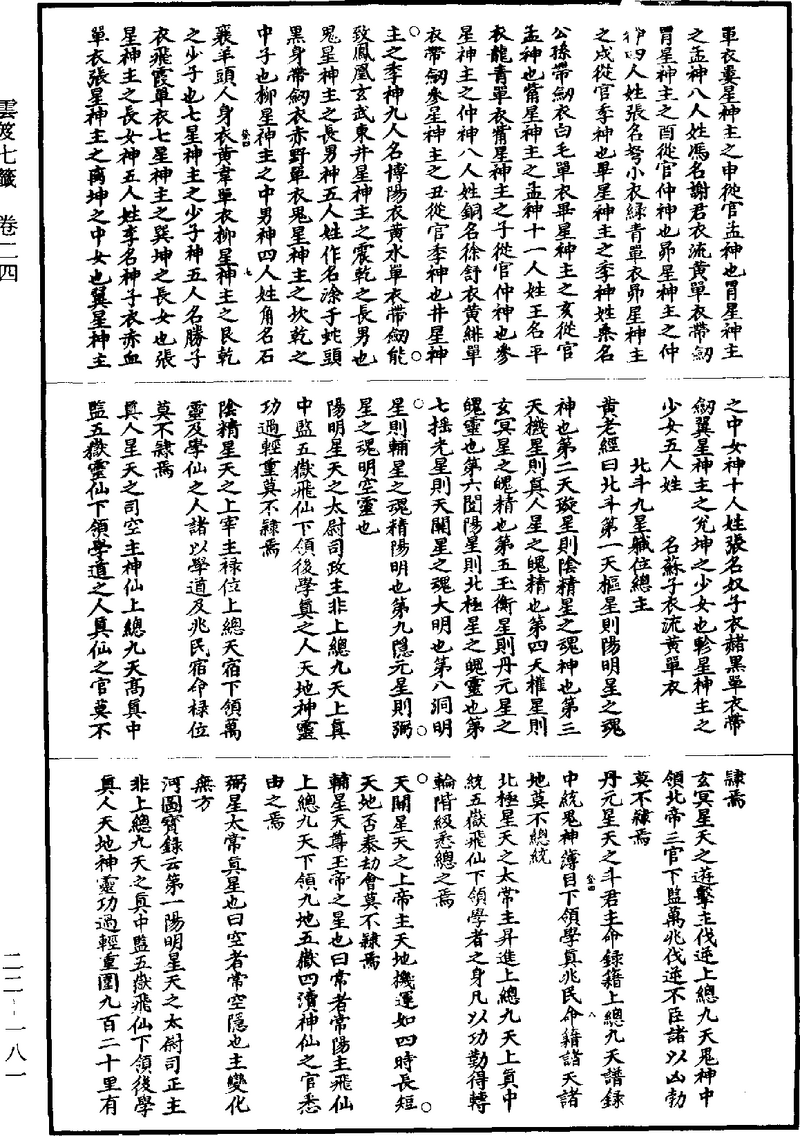 單衣婁星神主之申從官孟神也胃星神主
之孟神八人姓馮名謝君衣流黃單衣帶劒
胃星神主之酉從官仲神也昴星神主之仲
神四人姓張名弩小衣綠青單衣昴星神主
之戌從官季神也畢星神主之季神姓桑名
公孫帶劒衣白毛單衣畢星神主之亥從官
孟神也觜星神主之孟神十一人姓王名平
衣龍青單衣觜星神主之子從官仲神也參
星神主之仲神八人姓銅名徐舒衣黃緋單
衣帶劒參星神主之丑從官季神也井星神
主之季神九人名博陽衣黃水單衣帶劒能
致鳳凰玄武東井星神主之震乾之長男也
鬼星神主之長男神五人姓作名涂于蛇頭
黑身帶劒衣赤野單衣鬼星神主之坎乾之
中子也柳星神主之中男神四人姓角名石
襄羊頭人身衣黃韋單衣柳星神主之艮乾
之少子也七星神主之少子神五人名勝子
衣飛霞單衣七星神主之巽坤之長女也張
星神主之長女神五人姓李名神子衣赤血
單衣張星神主之离坤之中女也翼星神主
之中女神十人姓張名奴子衣赭黑單衣帶
劒翼星神主之兊坤之少女也軫星神主之
少女五人姓　名蘇子衣流黃單衣
北斗九星軄位總主
黃老經曰北斗第一天樞星則陽明星之魂
神也第二天璇星則陰精星之魂神也第三
天機星則真人星之魄精也第四天權星則
玄冥星之魄精也第五玉衡星則丹元星之
魄靈也第六闓陽星則北極星之魄靈也第
七揺光星則天關星之魂大明也第八洞明
星則輔星之魂精陽明也第九隱元星則弼
星之魂明空靈也
陽明星天之太尉司政主非上總九天上真
中監五嶽飛仙下領後學真之人天地神靈
功過輕重莫不隷焉
陰精星天之上宰主禄位上總天宿下領萬
靈及學仙之人諸以學道及兆民宿命禄位
莫不隷焉
真人星天之司空主神仙上總九天高真中
監五嶽靈仙下領學道之人真仙之官莫不
隷焉
玄冥星天之遊擊主伐逆上總九天鬼神中
領北帝三官下監萬兆伐逆不臣諸以凶勃
莫不隷焉
丹元星天之斗君主命錄籍上總九天譜錄
中統鬼神簿目下領學真兆民命籍諸天諸
地莫不總統
北極星天之太常主昇進上總九天上真中
統五嶽飛仙下領學者之身凡以功勤得轉
輪階級悉總之焉
天關星天之上帝主天地機運如四時長短
天地否泰劫會莫不隷焉
輔星天尊玉帝之星也曰常者常陽主飛仙
上總九天下領九地五嶽四瀆神仙之官悉
由之焉
弼星太常真星也曰空者常空隱也主變化
無方
河圖寶錄云第一陽明星天之太尉司正主
非上總九天之真中監五嶽飛仙下領後學
真人天地神靈功過輕重圍九百二十里有
雲笈七籤　卷二四
二二—一八一